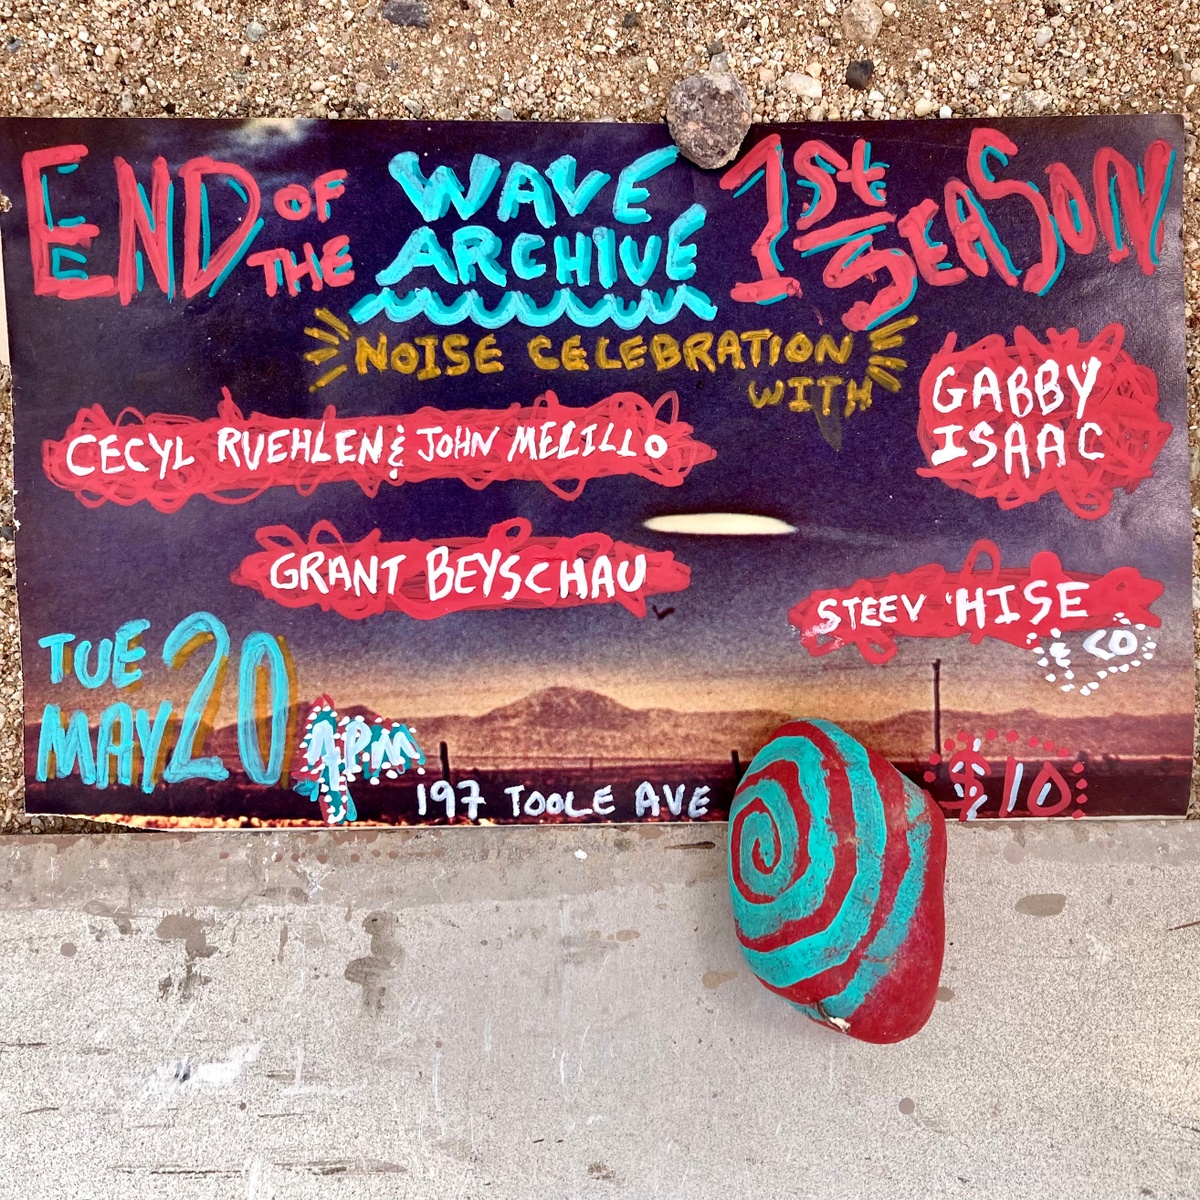 END OF THE WAVE ARCHIVE 1st SEASON
NOISE CELEBRATION
WITH
GABBY
ISAAC
CECYL RUEHLEN & JOHN MELILLO
GRANT BEYSCHAU
STEEV HISE
& CO
TUE
MAY 20
7PM
197 TOOLE AVE
$10